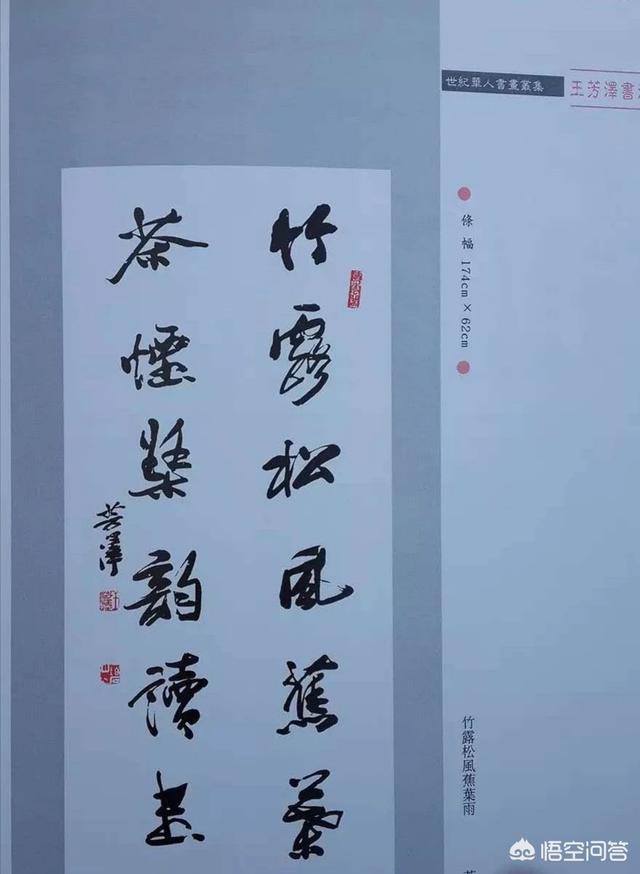 世紀華人書畫叢集
王芳澤書
條幅 174cm×62cm
竹露松風蕉葉雨
竹露松風蕉葉
茶煙琴韵讀書
芳澤
悟空问答